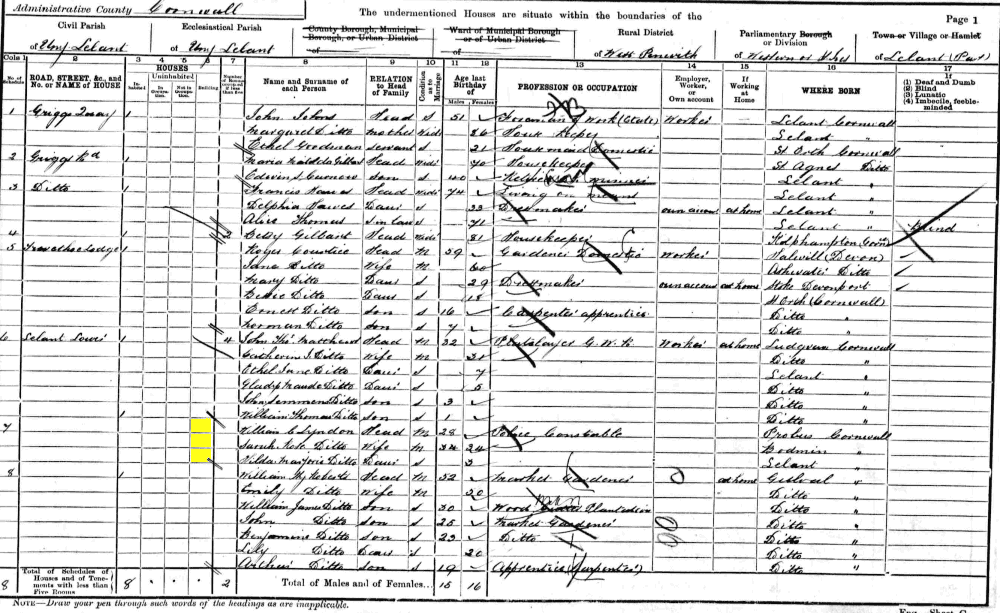 Administrative County Cornwall
The undermentioned Houses are situate within the boundaries of the
Page 1
Civil Parish
of Uny Lelant
Ecclesiastical Parish
of Uny Lelant
County Borough, Municipal Borough, or Urban District
of
Ward of Municipal Borough or of Urban District
of
Rural District
of West Penwith
Parliamentary Borough or Division
of Western or St Ives
Town or Village or Hamlet
of Lelant (Part)
Cols. 1 2 3 4 5 6 7 8 9 10 11 12 13 14 15 16 17
No. of Schedule
ROAD, STREET, &c., and No. or NAME of HOUSE
HOUSES
Inhabited
Uninhabited
In Occupation
Not in Occupation
Building
Number of Rooms occupied if less than five
Name and Surname of each Person
RELATION to Head of Family
Condition as to Marriage
Age last Birthday of
Males Females
PROFESSION OR OCCUPATION
Employer, Worker, or Own account
If Working at Home
WHERE BORN
(1) Deaf and Dumb
(2) Blind
(3) Lunatic
(4) Imbecile, feeble-minded
1 Griggs Quay 1 John Johns Head S 51 Foreman of Work Worker Lelant Cornwall
Margaret Ditto Mother Wid 86 House Keeper Lelant "
Ethel Goodman Servant S 21 Housemaid Domestic St Erth Cornwall
2 Griggs Rd 1 Maria Head Wid 70 Housekeeper St Agnes Ditto
Edwin S Curnow Son S 40 Lelant "
3 Ditto 1 Francis Hawes Head Wid 74 Living on means Lelant "
Delphia Hawes Daur S 33 Dressmaker own account at home Lelant "
Alice Thomas S in law S 71 Lelant " Blind
4 1 Betsy Gilbart Head Wid 81 Housekeeper
5 1 Roger Coustice Head M 59 Gardener Domestic Worker (Devon)
Jana Ditto Wife M 60 Ditto
Mary Ditto Daur S 29 Dressmaker own account at home Stoke Devonport
Bessie Ditto Daur S 18 St Erth (Cornwall)
Ernest Ditto Son S 16 Carpenter apprentice Ditto "
Norman Ditto Son S 7 Ditto "
6 Lelant 1 4 John Thos Head M 32 Platelayer G.W.R Worker at home Ludgvan Cornwall
Catherin J. Ditto Wife M 31 Ditto "
Ethel Jane Ditto Daur S 7 Lelant "
Gladys Maude Ditto Daur S 5 Ditto "
John Ditto Son S 3 Ditto "
William Thomas Ditto Son S 1 Ditto "
7 1 William C Lyndon Head M 28 Police Constable Probus Cornwall
Sarah Ditto Wife M 24 Bodmin "
Hilda Marjorie Ditto Daur S 3 Lelant "
8 1 William Hy Roberts Head M 52 Market Gardener at home Gulval "
Emily Ditto Wife M 50 Ditto "
William James Ditto Son S 30 Wood Plantation Ditto "
John Ditto Son S 25 Market Gardener Ditto "
Benjamine Ditto Son S 23 Ditto Ditto "
Lily Ditto Daur S 20 Ditto "
Archie Ditto Son S 19 Apprentice (Carpenter) Ditto "
8 Total of Schedules of Houses and of Tenements with less than Five Rooms 8 2
Total of Males and of Females... 15 16
NOTE—Draw your pen through such words of the headings as are inapplicable.